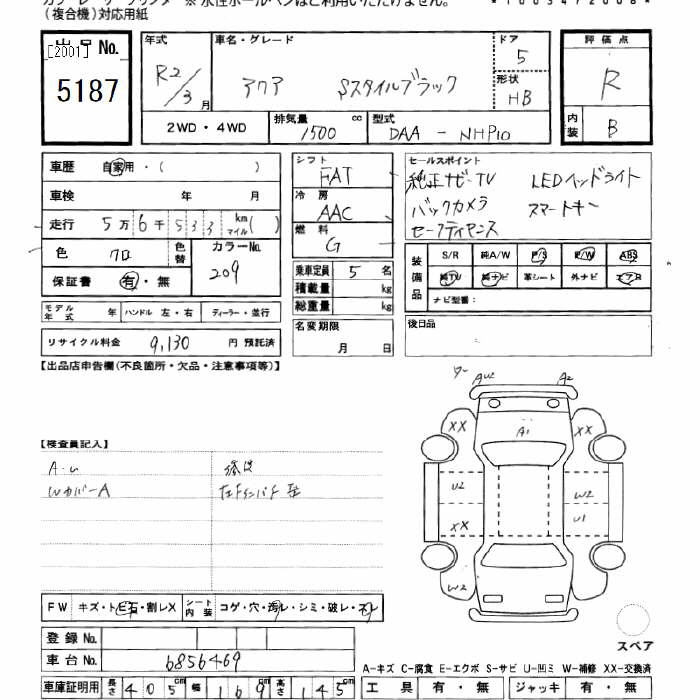 (複合機)対応用紙
出品No. [2001] 5187
年式 R2/3月
車名・グレード アクア Sスタイルブラック
ドア 5
形状 HB
評価点 R
内装 B
2WD・4WD
排気量 1500 cc
型式 DAA-NHP10
車歴 自家用・( )
車検 年 月
走行 5万6千533 km マイル( )
色 クロ 色替
カラーNo. 209
保証書 有・無
モデル年式 年 ハンドル 左・右 ディーラー・並行
リサイクル料金 9,130 円 預託済
シフト FAT
冷房 AAC
燃料 G
乗車定員 5 名
積載量 kg
総重量 kg
名変期限
月 日
セールスポイント
純正ナビ・TV LEDヘッドライト
バックカメラ スマートキー
セーフティセンス
装備品
S/R 純A/W P/S P/W ABS
純TV 純ナビ 革シート 外ナビ エアB
ナビ型番:
後日品
【出品店申告欄(不良箇所・欠品・注意事項等)】
【検査員記入】
A・U
Wカバー A
FW キズ・トビ石・割レX
シート内装 コゲ・穴・汚レ・シミ・破レ・スレ
登録No.
車台No. 6856469
車庫証明用 長さ 405 cm 幅 169 cm 高さ 145 cm
AU2 A2
XX A1 XX
U2 W2
XX U1
W2
スペア
A-キズ C-腐食 E-エクボ S-サビ U-凹ミ W-補修 XX-交換済
工具 有・無 ジャッキ 有・無